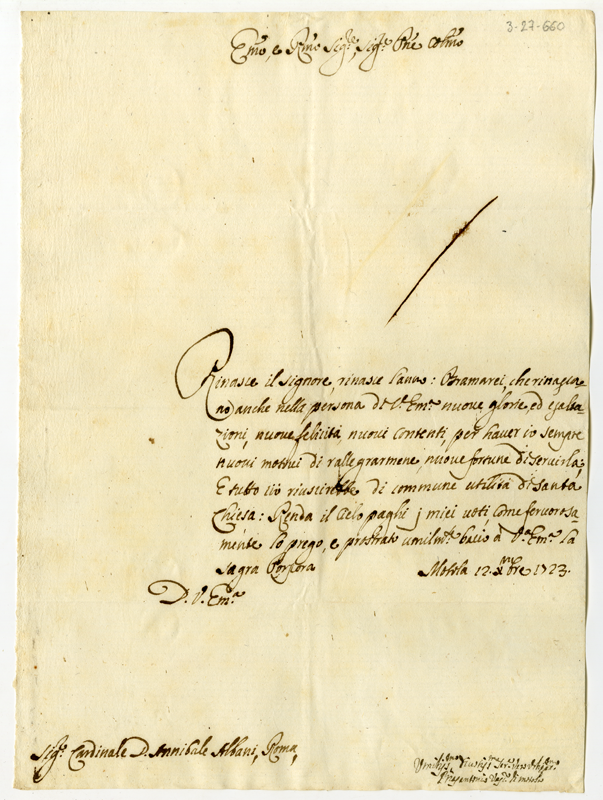 3-27-660
Em̃o, e Rm̃o Sigr̃e, Sigr̃e Pñe Colm̃o
Rinasce il Signore, rinasce l'anno: Bramarei, che rinasca=
no anche nella persona di V. Emã nuove glorie, ed esalta=
zioni, nuove felicità, nuovi contenti, per haver io sempre
nuovi motivi di rallegrarmene, nuove fortune di servirla,
E tutto ciò riuscirebbe di commune utilità di Santa
Chiesa: Renda il Cielo paghi i miei voti, come fervorosa=
mente lo prego, e prostrato umilmte bacio a Vra Emã la
sagra Porpora Motola 12. Xmbre 1723.
D. V. Emã
Sigr̃e Cardinale D. Annibale Albani, Roma,
di Motola